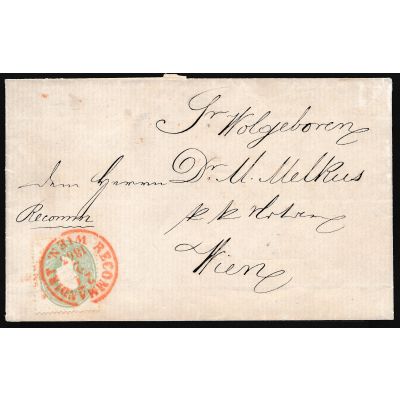 Sr Wolgeboren
Dem Herrn Dr. M. Melkus
Recomm
k k Notar
Wien
WIEN RECOMMANDIRT